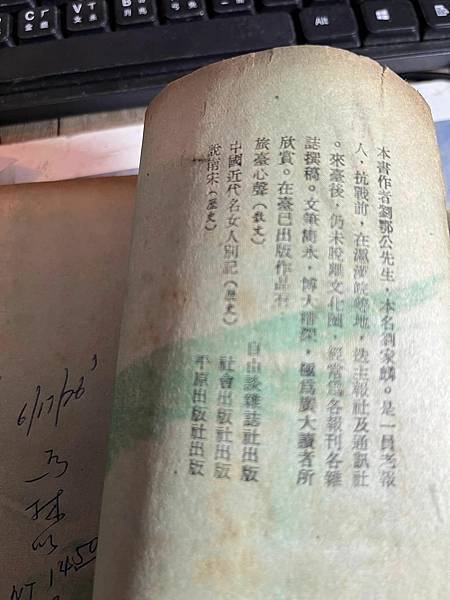 本書作者劉鄂公先生，本名劉家麟。是一員老報
人，抗戰前，在瀛漢皖等地，迭主報社及通訊社
。來臺後，仍未脫離文化圈，經常爲各報刊各雜
誌撰稿。文筆雋永，博大精深，極爲廣大讀者所
欣賞。在臺已出版作品有
旅臺心聲（散文）　自由談雜誌社出版
中國近代名女人別記（歷史）　社會出版社出版
說南宋（歷史）　平原出版社出版
6/17/76
NT 1450
Ctrl
Alt
C
V
B
N
M